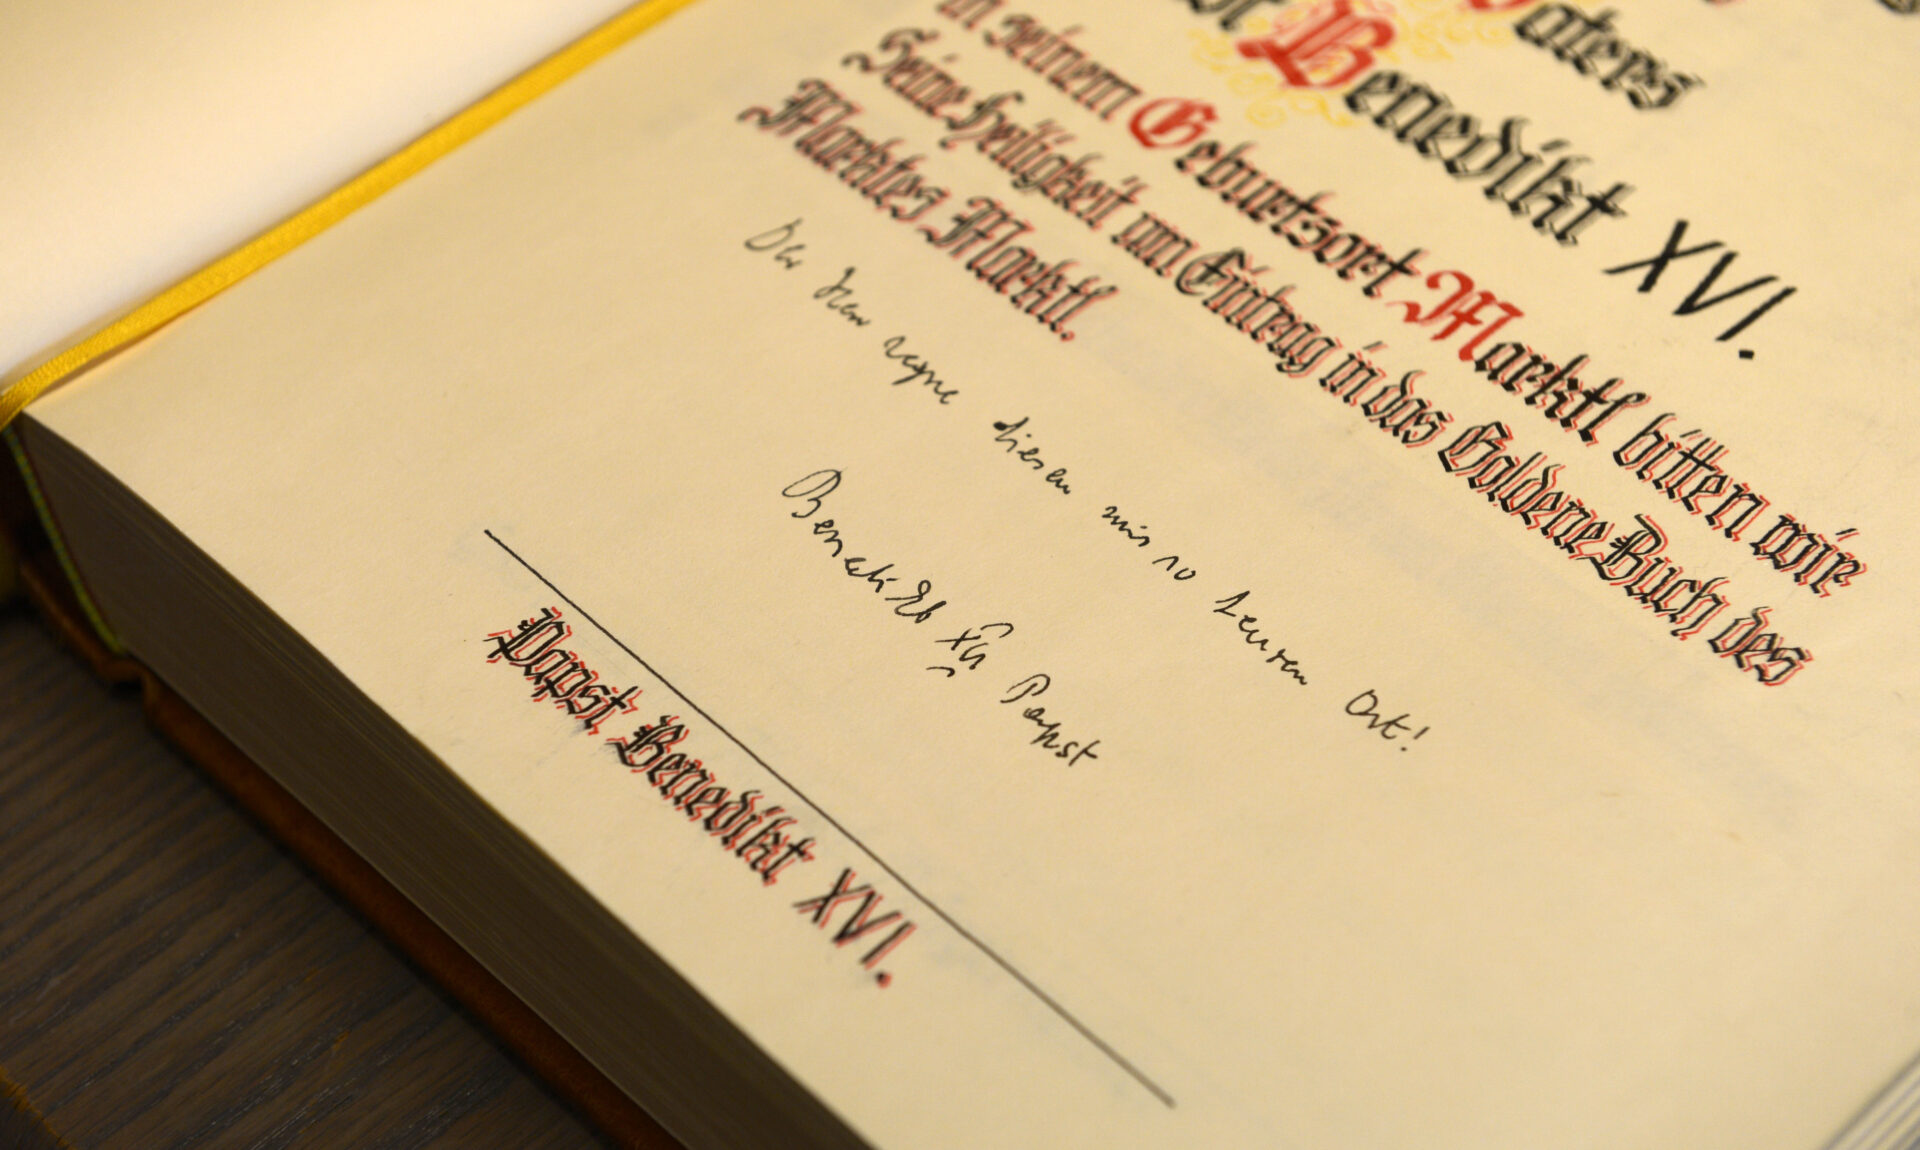 Vaters
Benedikt XVI.
in seinem Geburtsort Marktl bitten wir
Seine Heiligkeit um Eintrag in das Goldene Buch des
Marktes Marktl.
Der Herr segne diesen mir so teuren Ort!
Benedikt XVI Papst
Papst Benedikt XVI.